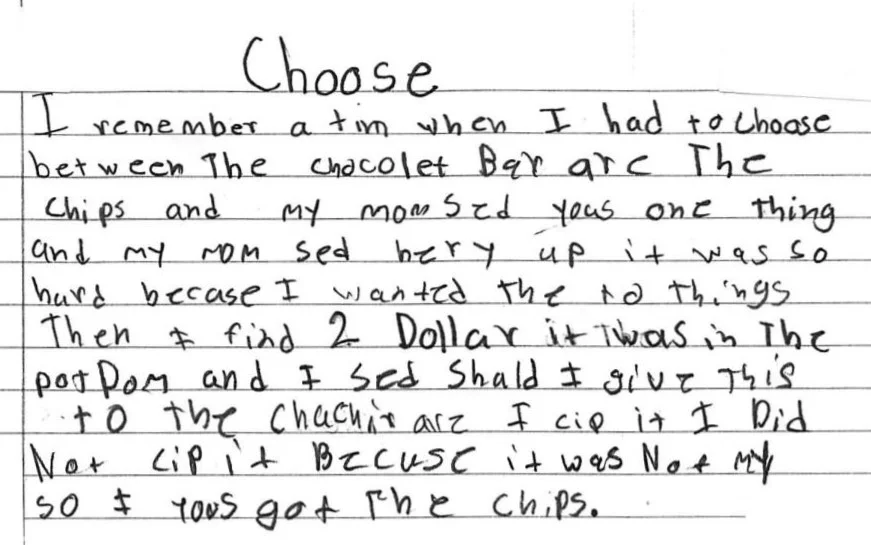 Choose
I remember a tim when I had to Choose
between The chocolet Bar are The
Chips and my mom sed yous one thing
and my mom sed hery up it was so
hard becase I wanted the to things
Then I find 2 Dollar it Twas in The
potDom and I sed Shald I give This
to the Chachir are I cip it I Did
Not cip it Becuse it was Not my
so I yous got The Chips.